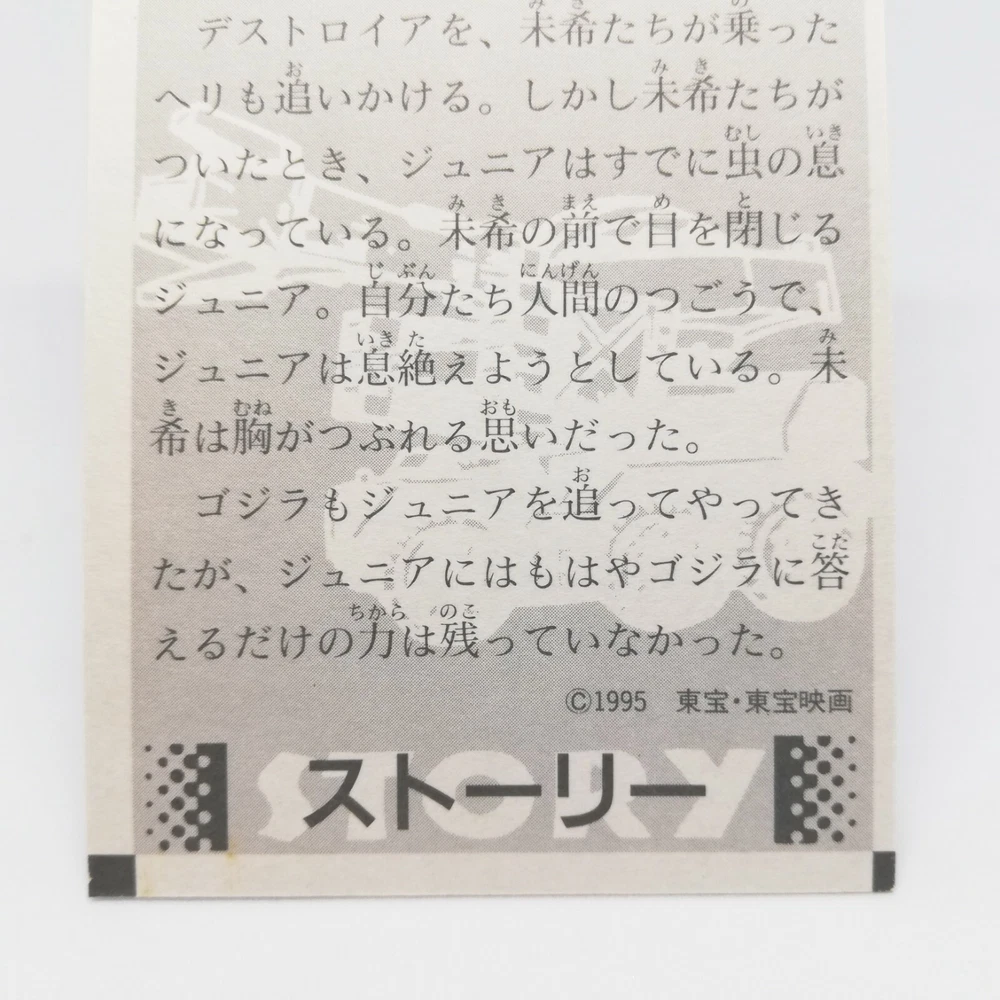 デストロイアを、未希たちが乗った
ヘリも追いかける。しかし未希たちが
ついたとき、ジュニアはすでに虫の息
になっている。未希の前で目を閉じる
ジュニア。自分たち人間のつごうで、
ジュニアは息絶えようとしている。未
希は胸がつぶれる思いだった。
ゴジラもジュニアを追ってやってき
たが、ジュニアにはもはやゴジラに答
えるだけの力は残っていなかった。
©1995 東宝・東宝映画
STORY
ストーリー